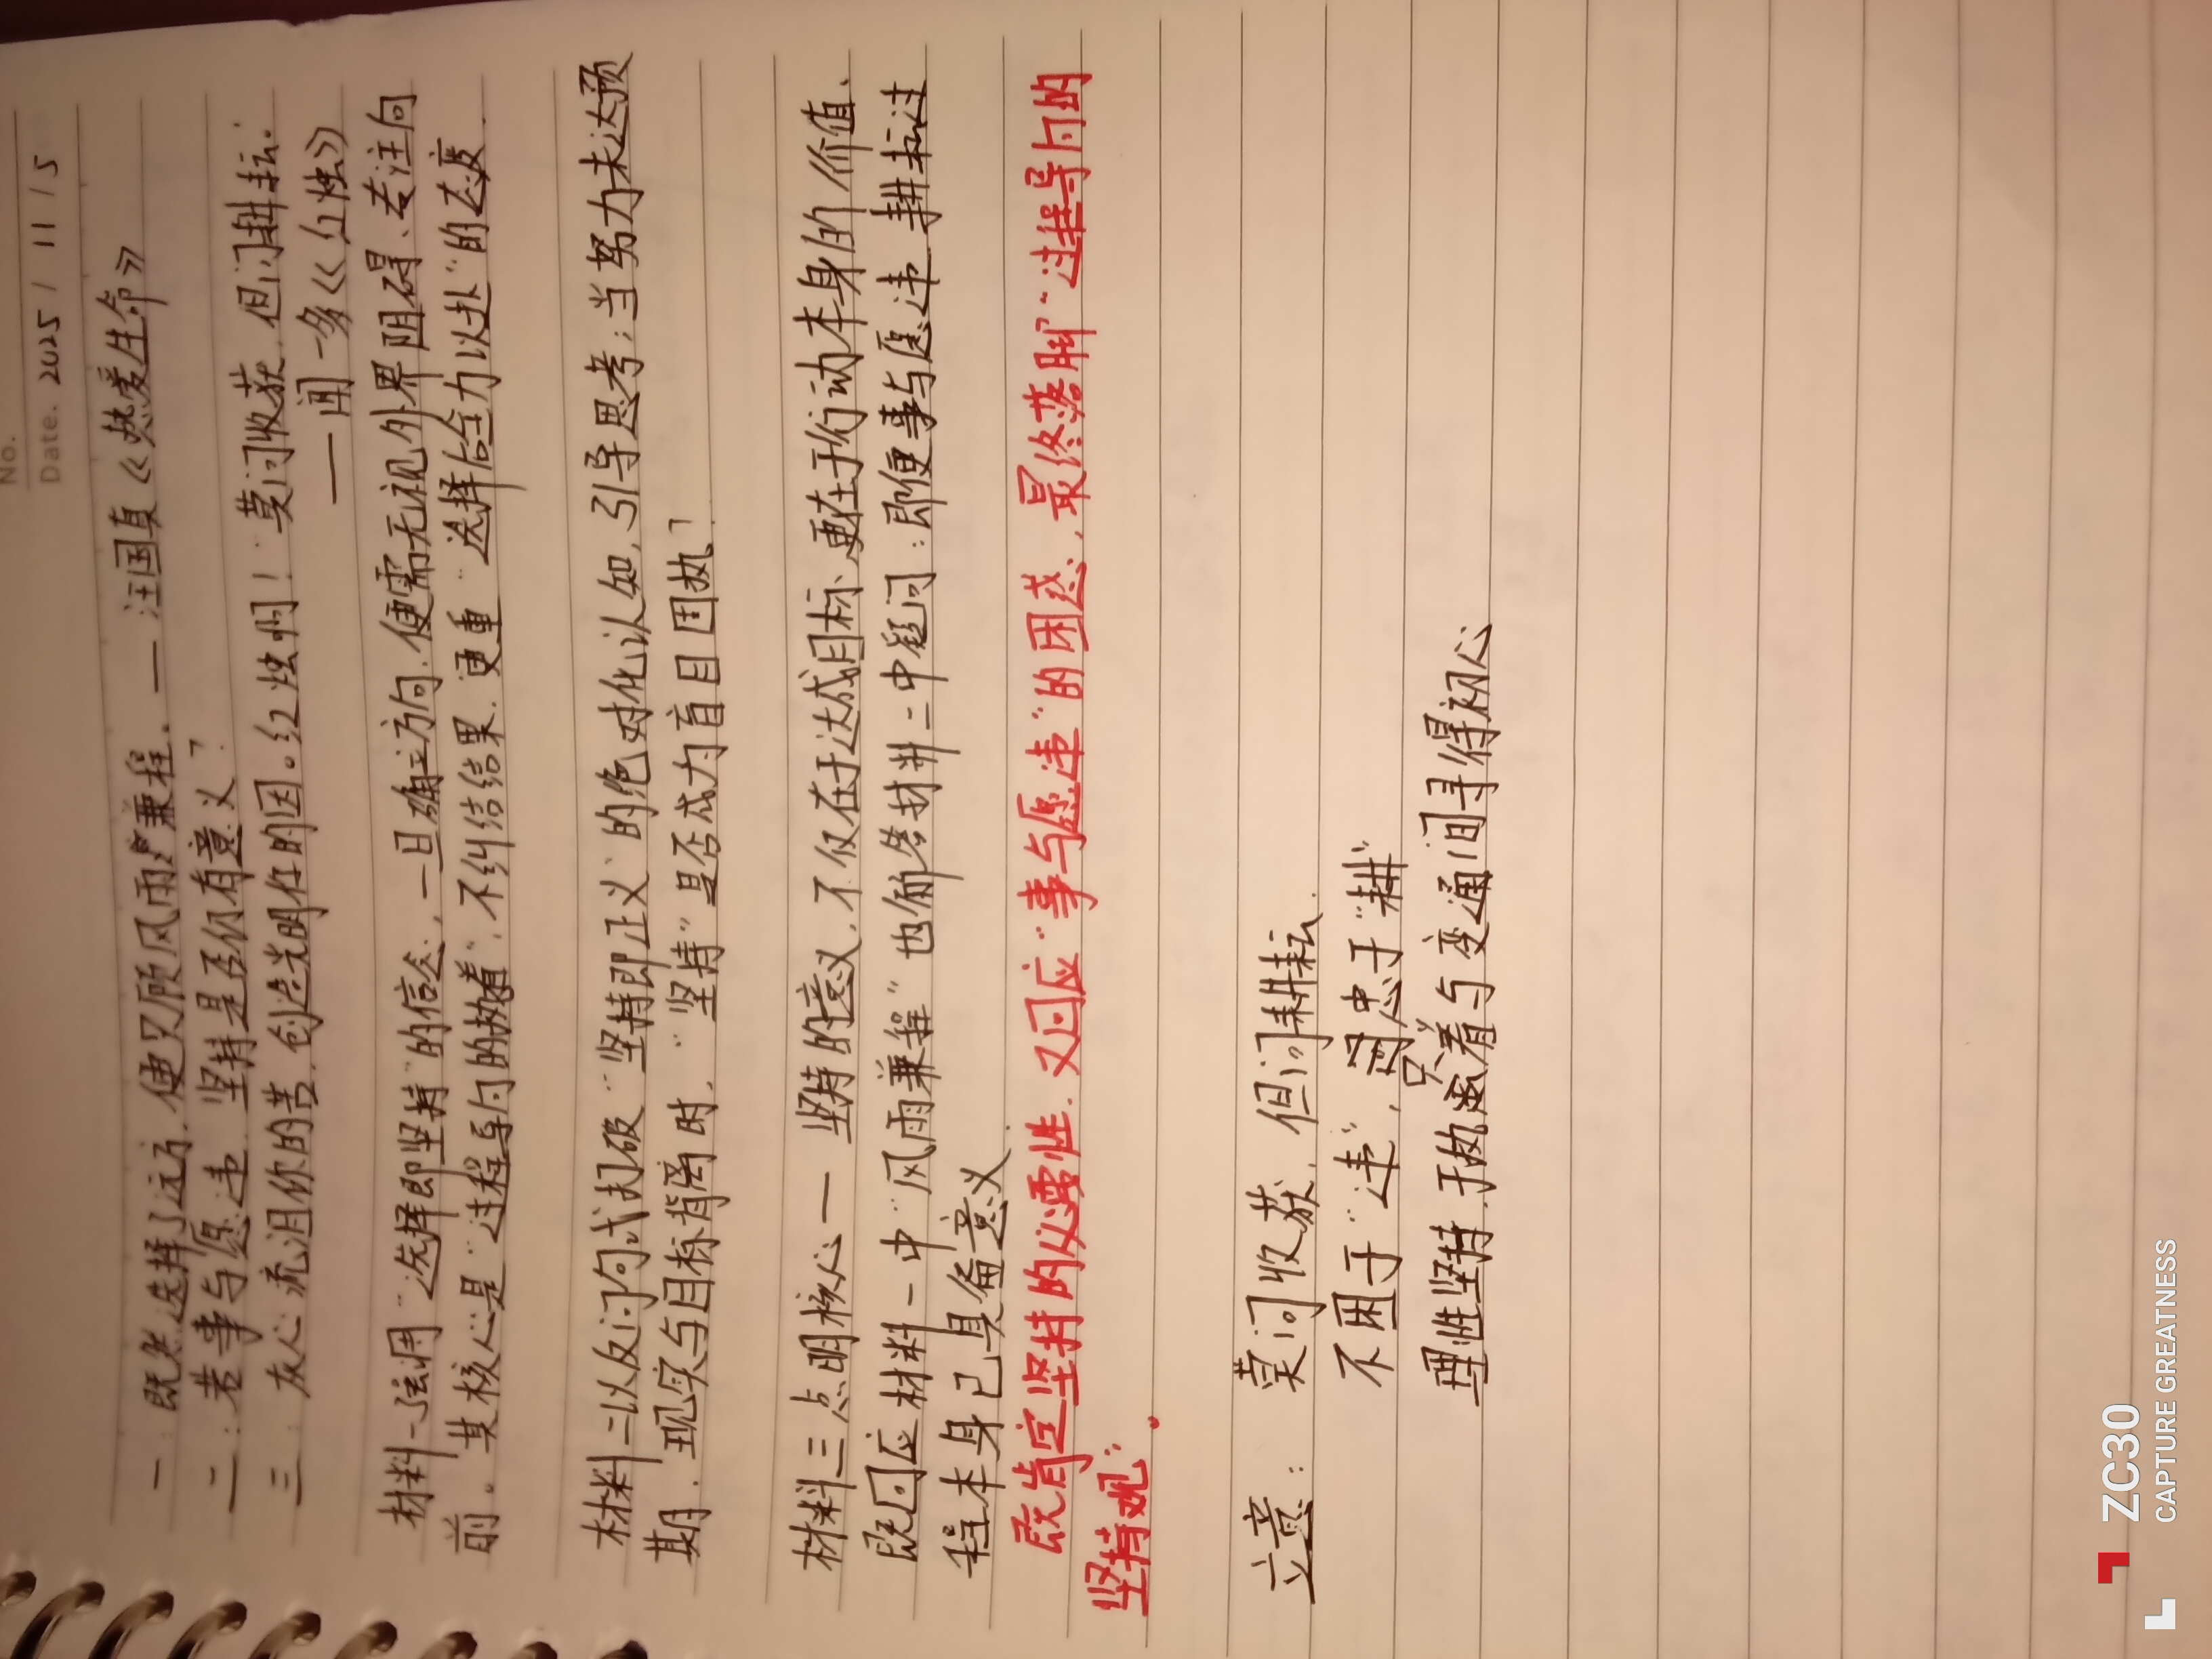 No.
Date. 2025 / 11 / 5
一：既然选择了远方，便只顾风雨兼程。—汪国真《热爱生命》
二：若事与愿违，坚持是否仍有意义？
三：灰心流泪你的苦，创造光明你的因。红烛啊！“莫问收获，但问耕耘。”
——闻一多《红烛》
材料一强调“选择即坚持”的信念，一旦确立方向，便需无视外界阻碍、专注向
前。其核心是“过程导向的执着”，不纠结结果，更重“选择后全力以赴”的态度.
材料二以反问句式打破“坚持即正义”的绝对化认知，引导思考：当努力未达预
期，现实与目标背离时，“坚持”是否成为盲目固执？
材料三点明核心— 坚持的意义，不仅在于达成目标、更在于行动本身的价值、
既回应材料一中“风雨兼程”也解答材料二中疑问：即便事与愿违，耕耘过
程本身已具备意义.
既肯定坚持的必要性，又回应“事与愿违”的困惑，最终落脚“过程导向的
坚持观”.
立意： 莫问收获，但问耕耘.
不困于“违”，只忠于“耕”
理性坚持，于执着与变通间寻得初心
ZC30
CAPTURE GREATNESS